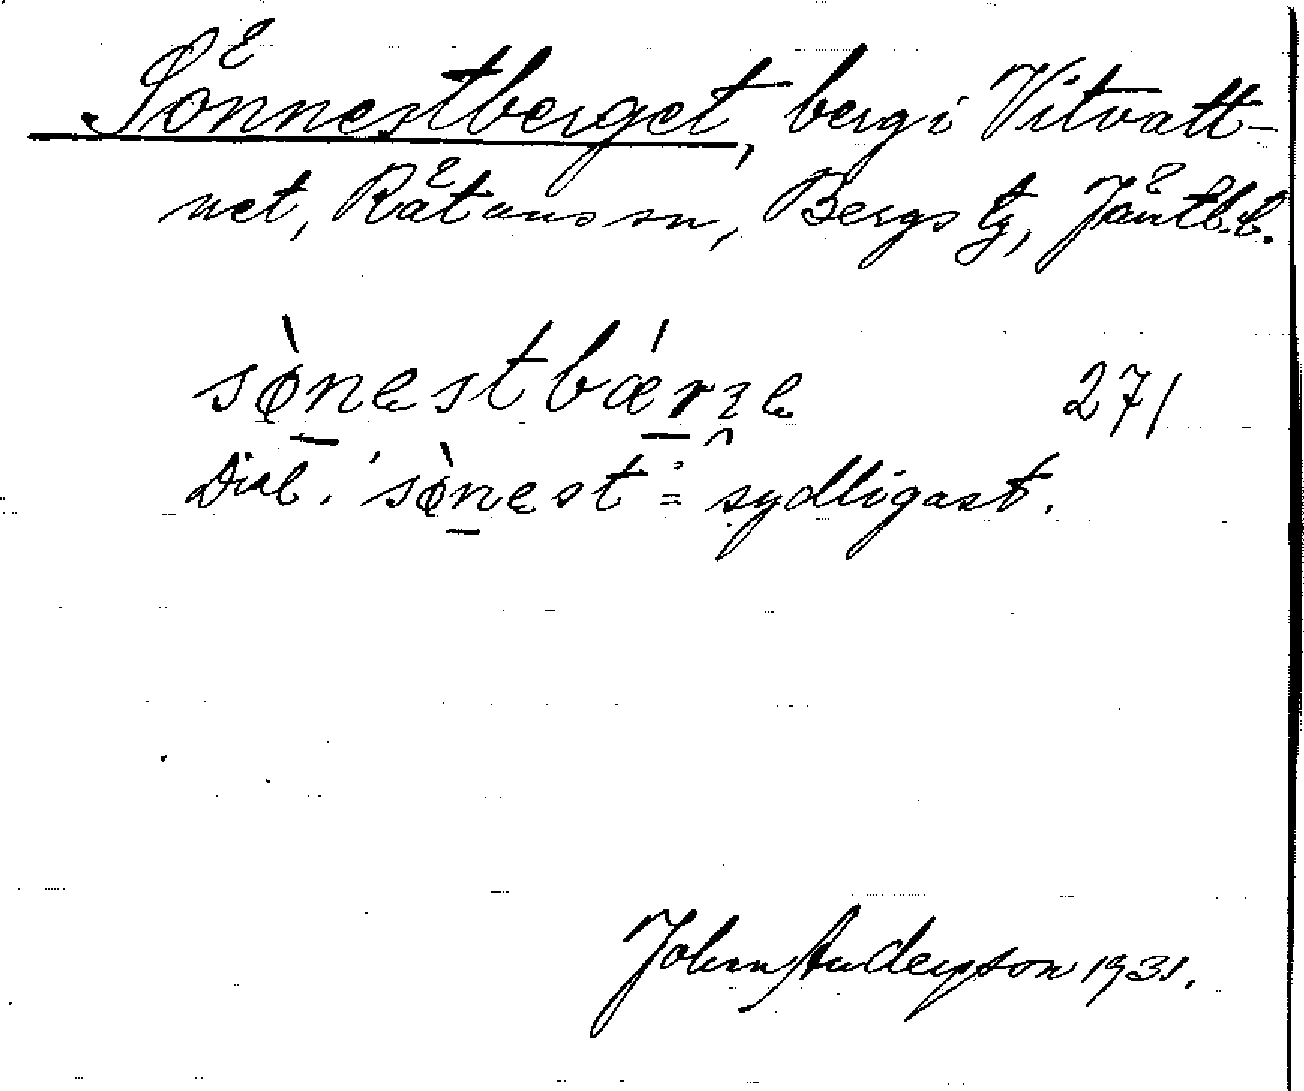 Sönnestberget, berg i Vitvatt-
net, Rätans sn, Bergs tg, Jämtl. l.
sø̀nestbærʒe 271
Dial. ́sø̀nest = sydligast.
Johan Anderson 1931.